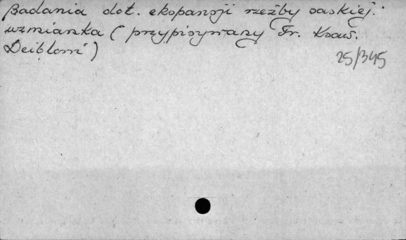 Badania dot. ekspansji rzeźby saskiej.
wzmianka (przypisywany Fr. Kraus.
Deiblom)
25/345